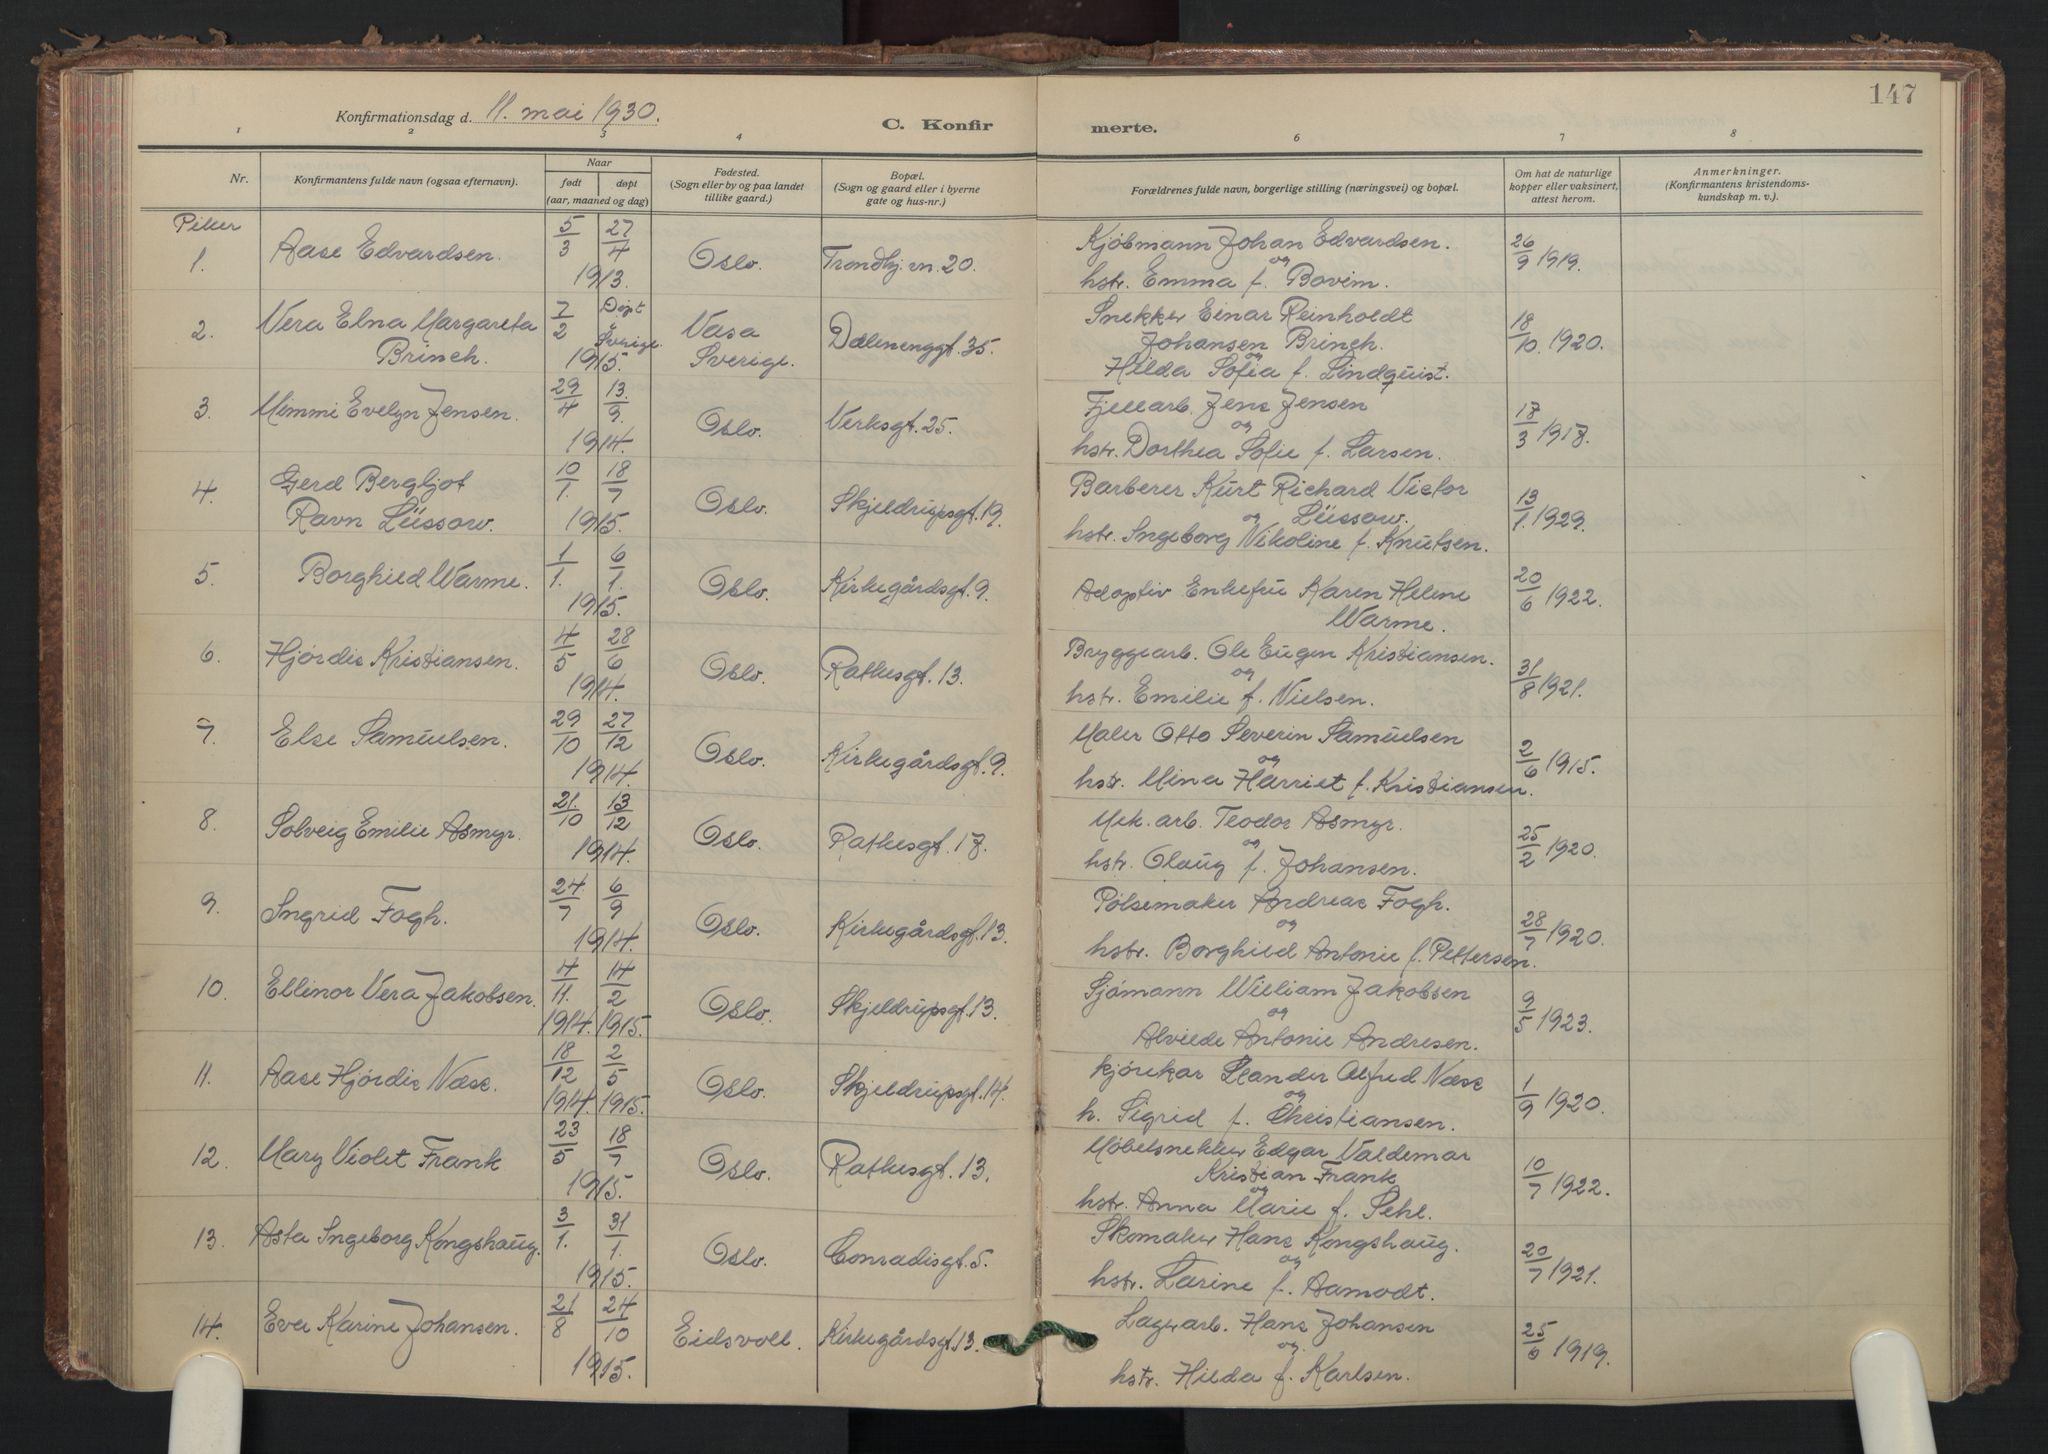 147
Konfirmationsdag d. 11. mai 1930.
C. Konfirmerte.
1 2 3 4 6 7 8
Nr. Konfirmantens fulde navn (ogsaa efternavn). Naar født døpt (aar, maaned og dag) Fødested. (Sogn eller by og paa landet tillike gaard.) Bopæl. (Sogn og gaard eller i byerne gate og hus-nr.) Forældrenes fulde navn, borgerlige stilling (næringsvei) og bopæl. Om hat de naturlige kopper eller vaksinert, attest herom. Anmerkninger. (Konfirmantens kristendoms-kundskap m. v.).
Piker
1. Aase Edvardsen. 5/3 27/4 1913. Oslo. Trondhj.vn. 20. Kjøbmann Johan Edvardsen. og hstr. Emma f. Bovim. 26/9 1919.
2. Vera Elna Margareta Brinch. 7/2 Døpt i Sverige. 1915. Vasa Sverige. Dælenenggt. 35. Snekker Einar Reinholdt Johansen Brinch. og Hilda Sofia f. Lindquist. 18/10. 1920.
3. Mimmi Evelyn Jensen. 29/4 13/9. 1914. Oslo. Verksgt. 25. Fjellarb. Jens Jensen og hstr. Dorthea Sofie f. Larsen. 17/3 1917.
4. Gerd Bergljot Ravn Lüssow. 10/1. 18/7 1915. Oslo. Skjeldrupsgt. 19. Barberer Kurt Richard Victor Lüssow. og hstr. Ingeborg Nikoline f. Knutsen. 13/1. 1929.
5. Borghild Warme. 1/1. 6/1. 1915. Oslo. Kirkegårdsgt. 9. Adoptiv Enkefru Karen Helene Warme. 20/6 1922.
6. Hjørdis Kristiansen. 4/5 28/6 1914. Oslo. Rathesgt. 13. Bryggearb. Ole Eugen Kristiansen. og hstr. Emilie f. Nielsen. 31/8 1921.
7. Else Samuelsen. 29/10 27/12 1914. Oslo. Kirkegårdsgt. 9. Maler Otto Severin Samuelsen og hstr. Mina Harriet f. Kristiansen. 2/6 1915.
8. Solveig Emilie Asmyr. 21./10 13/12 1914. Oslo. Rathesgt. 17. Mek. arb. Teodor Asmyr. og hstr. Olaug f. Johansen. 25/2 1920.
9. Ingrid Fogh. 24/7 6/9 1914. Oslo. Kirkegårdsgt. 13. Pølsemaker Andreas Fogh. og hstr. Borghild Antonie f. Pettersen. 28/7 1920.
10. Ellinor Vera Jakobsen. 4/11. 1914. 14/2 1915. Oslo. Skjeldrupsgt. 13. Sjømann William Jakobsen og Alvilde Antonie Andresen. 9/5 1923.
11. Aase Hjørdis Næss. 18/12 1914. 2/5 1915. Oslo. Skjeldrupsgt. 14. kjørekar Leander Alfred Næss og h. Sigrid f. Christiansen. 1/9 1920.
12. Mary Violet Frank 23/5 18/7 1915. Oslo. Rathesgt. 13. Møbelsnekker Edgar Valdemar Kristian Frank og hstr. Anna Marie f. Sehl. 10/7 1922.
13. Asta Ingeborg Kongshaug. 3/1. 31/1. 1915. Oslo. Conradisgt. 5. Skomaker Hans Kongshaug. og hstr. Larine f. Aamodt. 20/7 1921.
14. Eva Karine Johansen. 21/8 24/10 1915. Eidsvoll. Kirkegårdsgt. 13. Lagerarb. Hans Johansen og hstr. Hilda f. Karlsen. 25/6 1919.